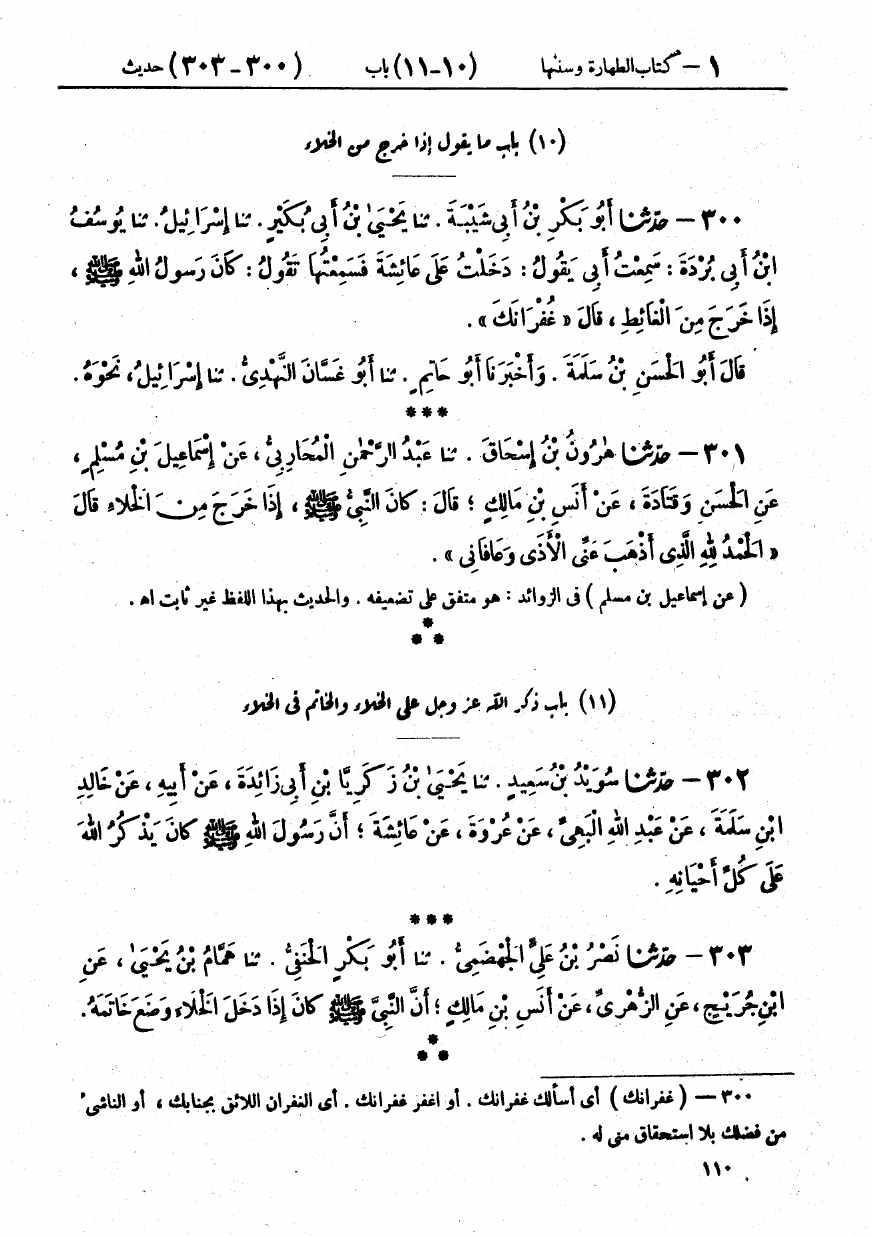 ١ – كتاب الطهارة وسننها (١٠-١١) باب (٣٠٠-٣٠٣) حديث
(١٠) باب ما يقول إذا خرج من الخلاء
٣٠٠ – حدّثنا أَبُو بَكْرِ بْنُ أَبِي شَيْبَةَ . ثنا يَحْيَىٰ بْنُ أَبِي بُكَيْرٍ . ثنا إِسْرَائِيلُ . ثنا يُوسُفُ
ابْنُ أَبِي بُرْدَةَ : سَمِعْتُ أَبِي يَقُولُ : دَخَلْتُ عَلَى عَائِشَةَ فَسَمِعْتُهَا تَقُولُ : كَانَ رَسُولُ اللهِ ﷺ ،
إِذَا خَرَجَ مِنَ الْغَائِطِ ، قَالَ « غُفْرَانَكَ » .
قَالَ أَبُو الْحَسَنِ بْنُ سَلَمَةَ . وَأَخْبَرَنَا أَبُو حَاتِمٍ . ثنا أَبُو غَسَّانَ النَّهْدِىُّ . ثنا إِسْرَائِيلُ ، نَحْوَهُ .
***
٣٠١ – حدّثنا هٰرُونُ بْنُ إِسْحَاقَ . ثنا عَبْدُ الرَّحْمٰنِ الْمُحَارِبِىُّ ، عَنْ إِسْمَاعِيلَ بْنِ مُسْلِمٍ ،
عَنِ الْحَسَنِ وَقَتَادَةَ ، عَنْ أَنَسِ بْنِ مَالِكٍ ؛ قَالَ : كَانَ النَّبِىُّ ﷺ ، إِذَا خَرَجَ مِنَ الْخَلَاءِ قَالَ
« الْحَمْدُ لِلهِ الَّذِى أَذْهَبَ عَنِّى الْأَذَى وَعَافَانِى » .
( عن إسماعيل بن مسلم ) فى الزوائد : هو متفق على تضعيفه . والحديث بهذا اللفظ غير ثابت اه .
***
(١١) باب ذكر الله عز وجل على الخلاء والخاتم فى الخلاء
٣٠٢ – حدّثنا سُوَيْدُ بْنُ سَعِيدٍ . ثنا يَحْيَىٰ بْنُ زَكَرِيَّا بْنِ أَبِي زَائِدَةَ ، عَنْ أَبِيهِ ، عَنْ خَالِدِ
ابْنِ سَلَمَةَ ، عَنْ عَبْدِ اللهِ الْبَهِىِّ ، عَنْ عُرْوَةَ ، عَنْ عَائِشَةَ ؛ أَنَّ رَسُولَ اللهِ ﷺ كَانَ يَذْكُرُ اللهَ
عَلَى كُلِّ أَحْيَانِهِ .
***
٣٠٣ – حدّثنا نَصْرُ بْنُ عَلِىٍّ الْجَهْضَمِىُّ . ثنا أَبُو بَكْرٍ الْحَنَفِىُّ . ثنا هَمَّامُ بْنُ يَحْيَىٰ ، عَنِ
ابْنِ جُرَيْجٍ ، عَنِ الزُّهْرِىِّ ، عَنْ أَنَسِ بْنِ مَالِكٍ ؛ أَنَّ النَّبِىَّ ﷺ كَانَ إِذَا دَخَلَ الْخَلَاءَ وَضَعَ خَاتَمَهُ .
***
٣٠٠ – ( غفرانك ) أى أسألك غفرانك . أو اغفر غفرانك . أى الغفران اللائق بجنابك ، أو الناشئ
من فضلك بلا استحقاق منى له .
١١٠